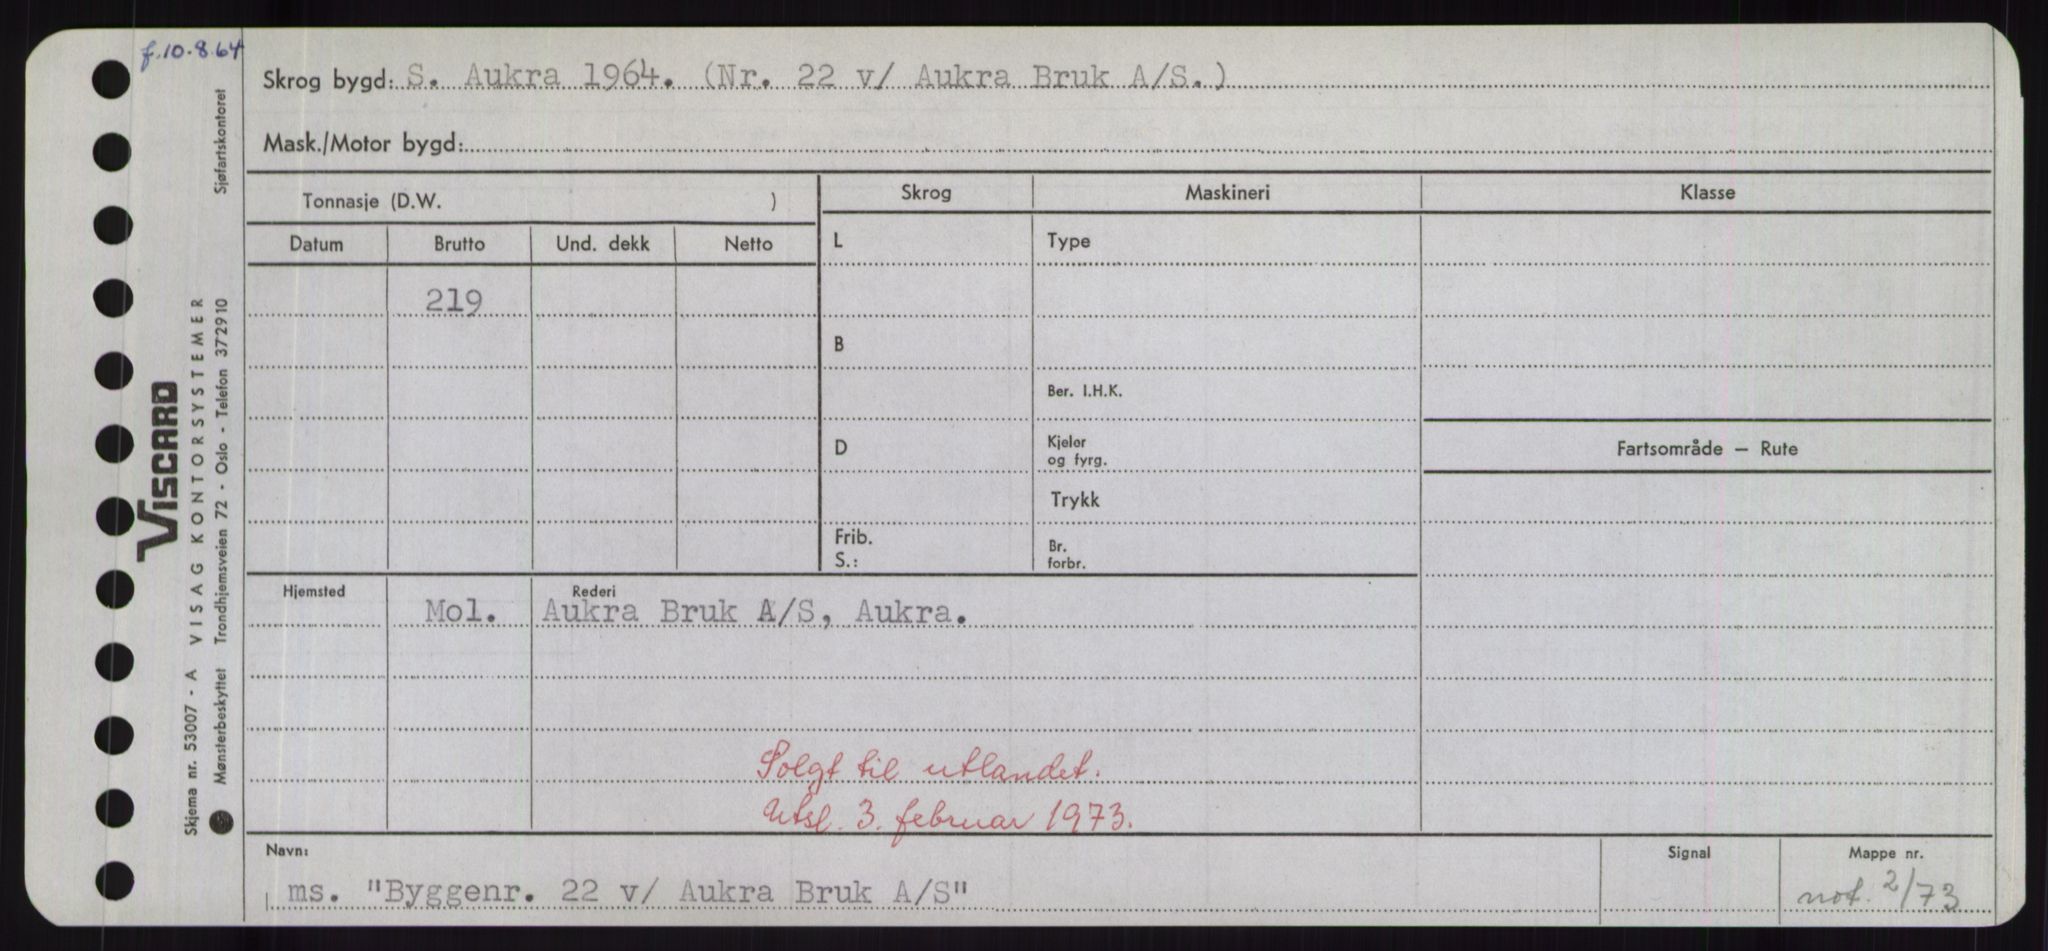 f.10.8.64
Skrog bygd: S. Aukra 1964. (Nr. 22 v/ Aukra Bruk A/S.)
Mask./Motor bygd:
Tonnasje (D.W. )
Skrog Maskineri Klasse
Datum Brutto Und. dekk Netto
L Type
219
B
Ber. I.H.K.
D Kjeler
og fyrg.
Fartsområde — Rute
Trykk
Frib.
S.:
Br.
forbr.
Hjemsted Rederi
Mol. Aukra Bruk A/S, Aukra.
Solgt til utlandet.
Utsl. 3. februar 1973.
Navn: Signal Mappe nr.
ms. "Byggenr. 22 v/ Aukra Bruk A/S" not. 2/73
VISCARD
Skjema nr. 53007 - A VISAG KONTORSYSTEMER
Mønsterbeskyttet Trondhjemsveien 72 - Oslo - Telefon 372910 Sjøfartskontoret